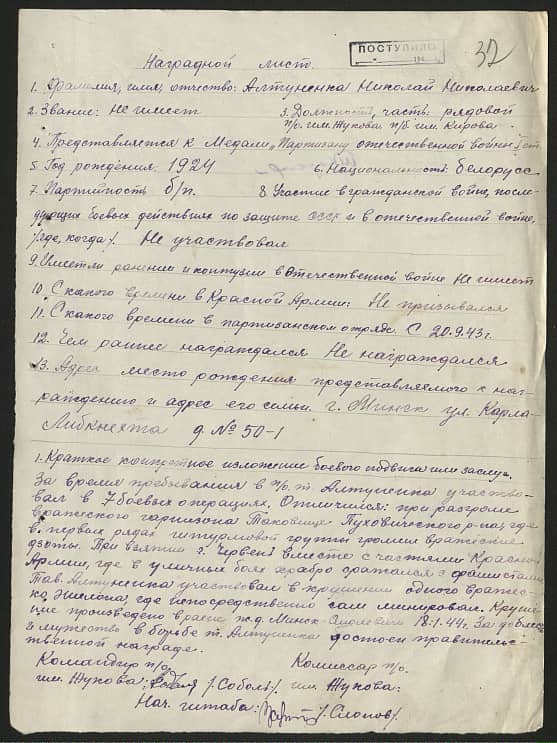 ПОСТУПИЛО
32
Наградной лист.
1. Фамилия, имя, отчество: Алтуненка Николай Николаевич
2. Звание: Не имеет 3. Должность, часть: рядовой
п/о. им. Жукова п/б им. Кирова.
4. Представляется к Медали „Партизану отечественной войны I ст.
5 Год рождения: 1924 6. Национальность: белорусс
7 Партийность б/п. 8 Участие в гражданской войне, после-
дующих боевых действиях по защите СССР и в отечественной войне,
/где, когда/. Не участвовал
9. Имеет ли ранении и контузии в отечественной войне Не имеет
10. С какого времени в Красной Армии: Не призывался
11. С какого времени в партизанском отряде. С 20.9.43г.
12. Чем раннее награждался Не награждался
13. Адрес место рождения представляемого к наг-
раждению и адрес его семьи. г. Минск ул. Карла-
Либкнехта д. № 50-1
1. Краткое конкретное изложение боевого подвига или заслуг.
За время пребывания в п/о. т. Алтуненка участво-
вал в 7 боевых операциях. Отличился: при разгроме
вражеского гарнизона Пуховичского р-на, где
в первых рядах штурмовой группы громил вражеские
дзоты. При взятии г. Червень вместе с частями Красной
Армии, где в уличных боях храбро сражался с фашистами
Тов. Алтуненка участвовал в крушении одного вражес-
кого эшелона, где непосредственно сам минировал. Круше-
ние произведено в раене ж.д. Минск 18.1.44г. За доблесть
и мужество в борьбе т. Алтуненка достоен правительс-
твенной награде.
Командир п/о. Комиссар п/о.
им. Жукова: /Соболь/ им. Жукова:
Нач. штаба: /Слопов/